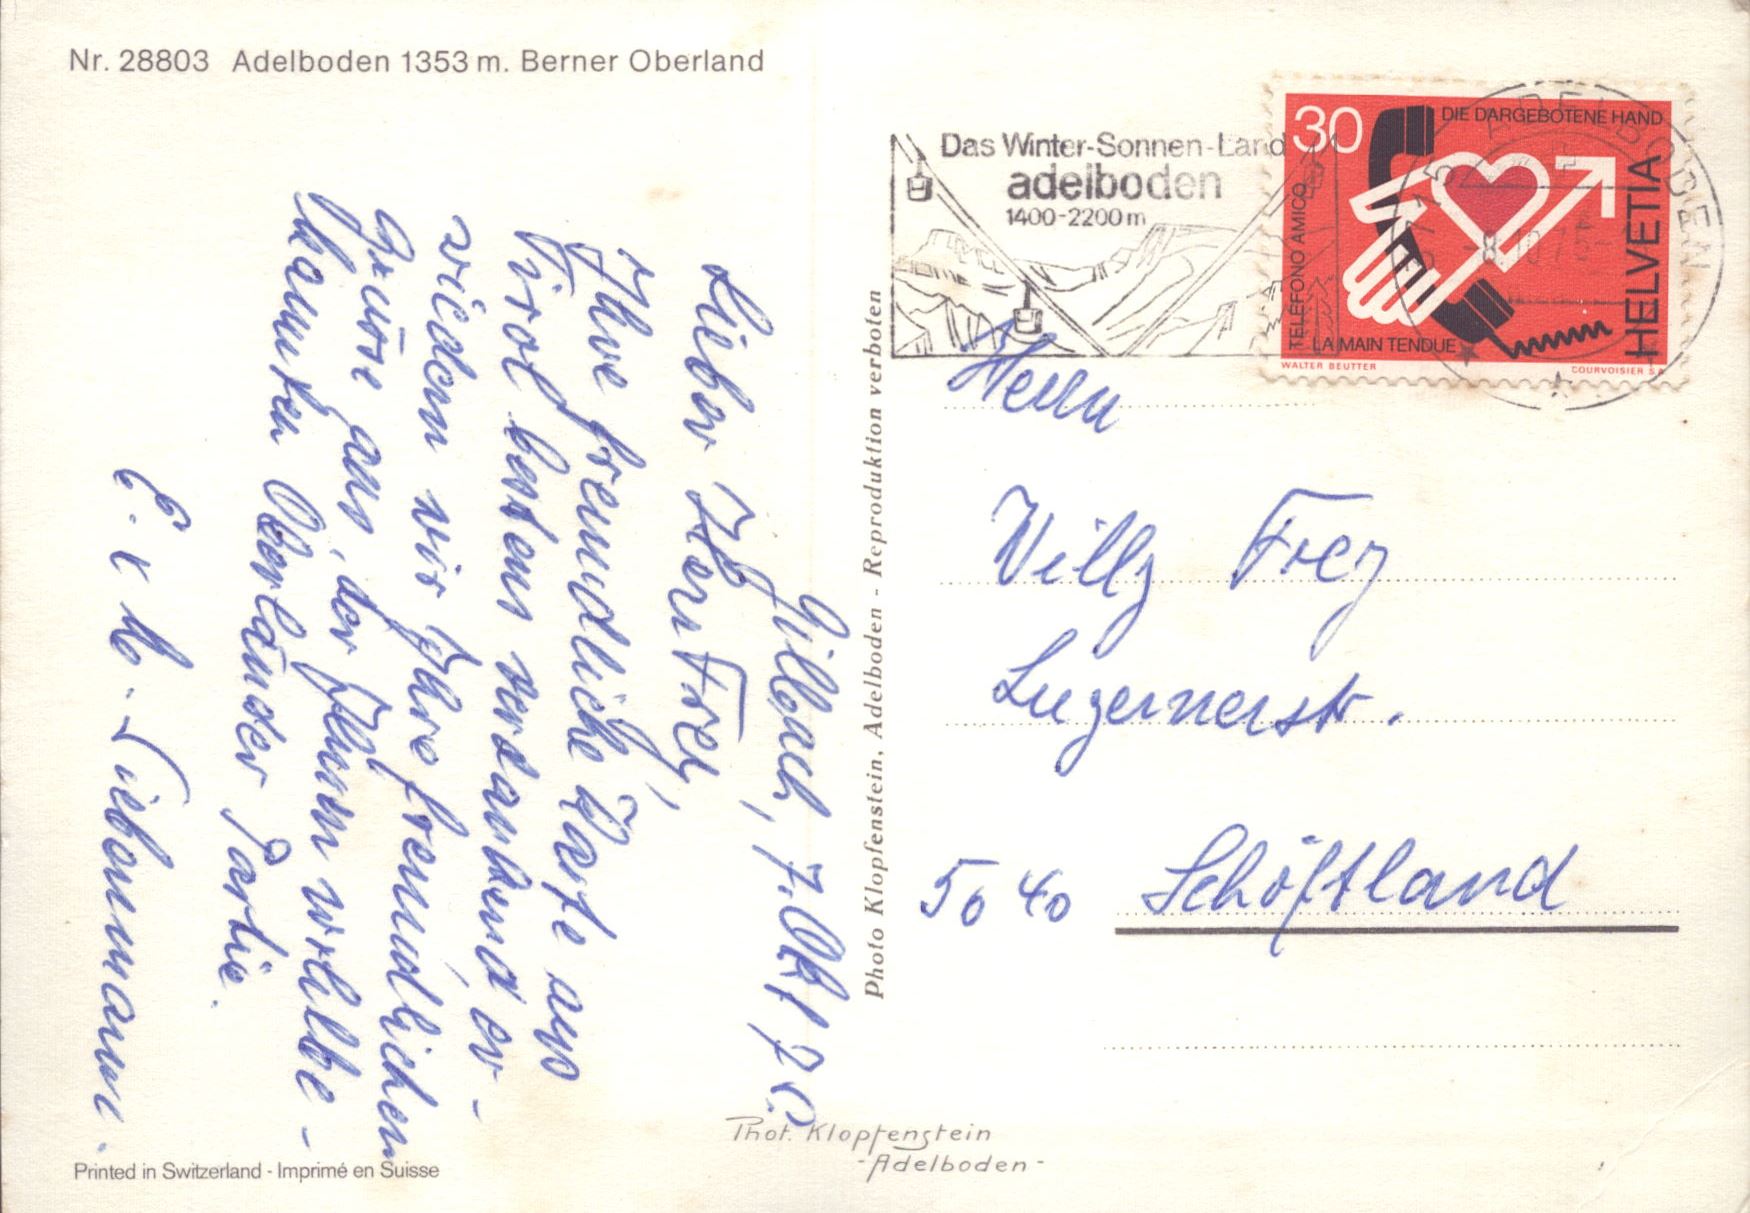 Nr. 28803 Adelboden 1353 m. Berner Oberland
Gilbach, 7. Okt 75
Lieber Herr Frey,
Ihre freundliche Karte aus
Tirol bestens verdankend, er-
widern wir Ihre freundlichen
Grüsse aus der Ihnen wohlbe-
kannten Oberländer Partie.
E. + M. Liebermann.
Printed in Switzerland - Imprimé en Suisse
Phot. Klopfenstein
- Adelboden -
Photo Klopfenstein, Adelboden - Reproduktion verboten
Das Winter-Sonnen-Land
adelboden
1400-2200 m
3715 ADELBODEN
-8.10.75-
30
DIE DARGEBOTENE HAND
TELEFONO AMICO
LA MAIN TENDUE
HELVETIA
WALTER BEUTTER
COURVOISIER S.A.
Herrn
Willy Frey
Luzernerstr.
5040 Schöftland